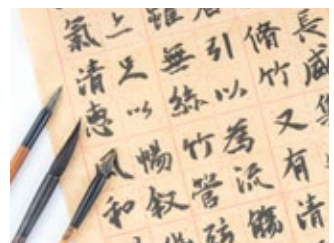 長咸
脩竹又有清
引以為流觴
雖無絲竹管
足以暢敘
氣清惠風和